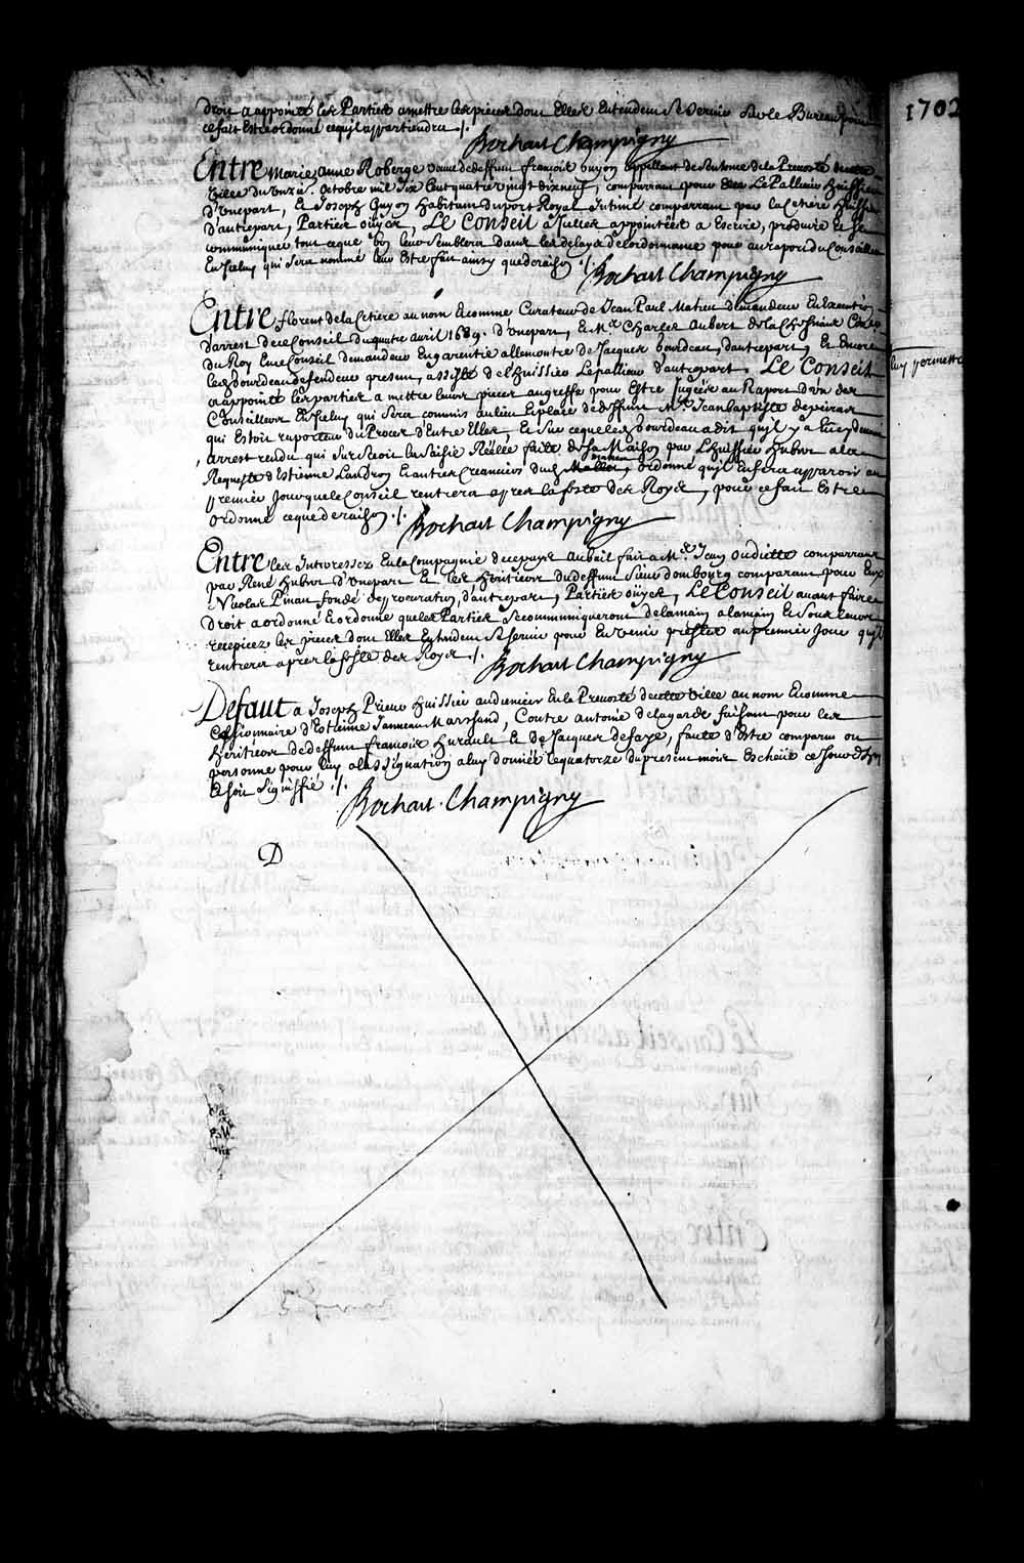 droit a appointé les Parties a mettre les pieces dont Elles Entendent Se Servir Sur le Bureau pour
ce fait Estre ordonné ce qu'il appartiendra ./.
Bochart Champigny
1702
Entre Marie anne Roberge veuve de deffunt françois Guyon appellant de Sentence de la Prevosté de cette
ville du onze octobre mil Six Cent quatre vingt dix neuf, comparant pour Elle LePallieur huissier
d'Une part, Et Joseph Guyon habitant du port Royal Intimé comparant par la Cetiere huissier
d'autre part, Parties oüyes, Le Conseil a Iceles appointées a Escrire, produire Et Se
communiquer tout ce que bon leur Semblera dans les delays de l'ordonnance pour au raport du Conseiller
En Iceluy qui Sera nommé leur Estre fait ainsy que de raison ./. Bochart Champigny
Entre florent de la Cetiere au nom Et comme Curateur de Jean Paul Maheu demandeur En Execution
d'arrest de ce Conseil du quatre avril 1689. d'Une part, Et Mr Charles Aubert de la Chesnaye Conser
du Roy En ce Conseil demandeur En garentie allencontre de Jacques bourdeau, d'autre part, Et Encore
led bourdeau defendeur present, assisté de l'huissier Lepallieur d'autre part, Le Conseil
luy permettre
a appointé les parties a mettre leurs pieces au greffe pour Estre Jugées au Raport d'un des
Conseillers En Iceluy qui Sera commis au lieu Et place de deffunt Mr. Jean baptiste depeiras
qui Estoit raporteur du Proces d'Entre Elles, Et Sur ce que led bourdeau a dit qu'il y a Eu
arrest rendu qui Surseoit la Saisie Réelle faite de Sa Maison par L'huissier hubert a la
Requeste d'Estienne Landron Et autres Creanciers dud Maheu, ordonne qu'il En fera apparoir au
premier Jour que le Conseil rentrera apres la feste des Roys, pour ce fait Estre
ordonné ce que de raison ./. Bochart Champigny
Entre les Interressez En la Compagnie de ce pays au bail fait a Mr. Jean oudiette comparant
par René hubert d'Une part Et les heritiers du deffunt Sieur dombourg comparant pour Eux
Nicolas Pinau fondé de procuration, d'autre part, Parties oüyes, Le Conseil avant faire
Droit a ordonné Et ordonne que les Parties Se communiqueront de la main a la main Et Sous leurs
recepicez les pieces dont Elles Entendent Se Servir pour En venir prestes au premier Jour qu'il
rentrera apres la feste des Roys ./. Bochart Champigny
Defaut a Joseph Prieur huissier audiencier En la Prevosté de cette ville au nom Et comme
Cessionnaire d'Estienne Janneau Marchand, Contre antoine de la garde faisant pour les
heritiers de deffunt françois hurault Et de Jacques de faye, faute d'Estre comparu ou
personne pour luy a l'assignation a luy donnée le quatorze du present mois Escheüe ce Jour d'huy
Et soit Signiffié ./.
Bochart Champigny
D